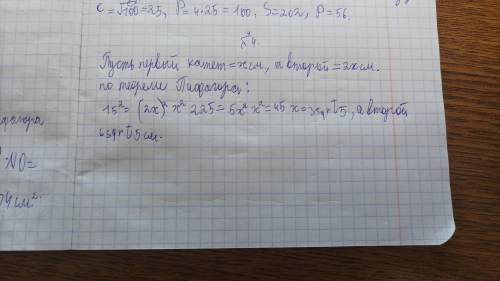 c = √100 = 25, P = 4·25 = 100, S = 202, P = 56.
№4.
Пусть первый катет = x см, а второй = 2x см.
по теореме Пифагора:
15² = (2x)² x² 225 = 5x² x² = 45 x = 3sqrt5, а второй
6sqrt5 см.
NO =
04 см²